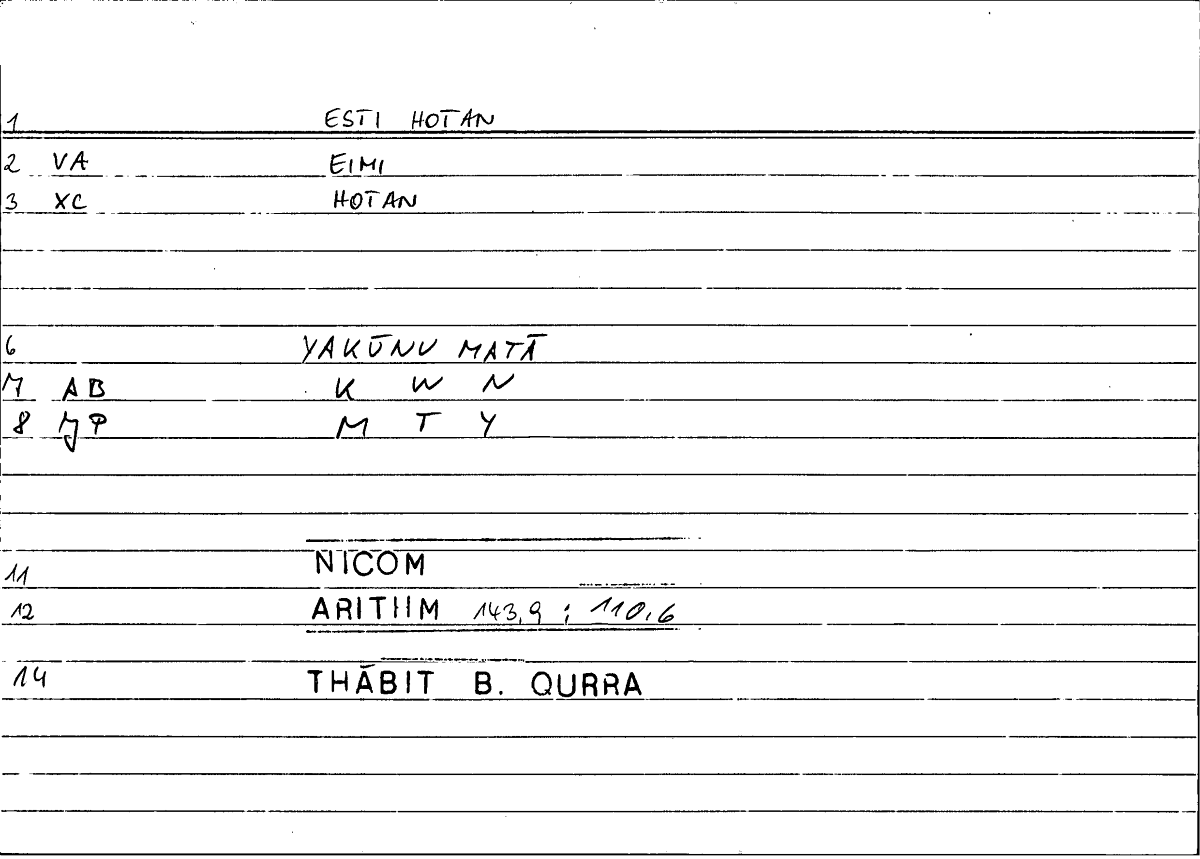 1 ESTI HOTAN
2 VA EIMI
3 XC HOTAN
6 YAKŪNU MATĀ
7 AB K W N
8 JP M T Y
11 NICOM
12 ARITHM 143,9 ; 110,6
14 THĀBIT B. QURRA